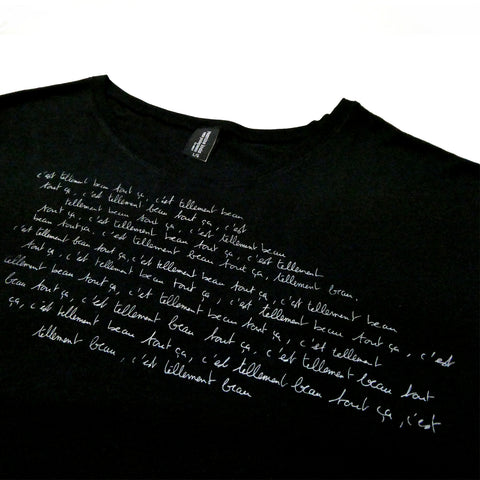 c'est tellement beau tout ça, c'est tellement beau
tout ça, c'est tellement beau tout ça, c'est
tellement beau tout ça, c'est tellement beau
tout ça, c'est tellement beau tout ça, c'est tellement
beau tout ça, c'est tellement beau tout ça, tellement beau.
c'est tellement beau tout ça, c'est tellement beau tout ça, c'est tellement beau
tout ça, c'est tellement beau tout ça, c'est tellement
tellement beau tout ça, c'est tellement beau tout ça, c'est
beau tout ça, c'est tellement beau tout ça, c'est tellement beau tout
ça, c'est tellement beau tout ça, c'est tellement beau tout ça, c'est
tellement beau, c'est tellement beau